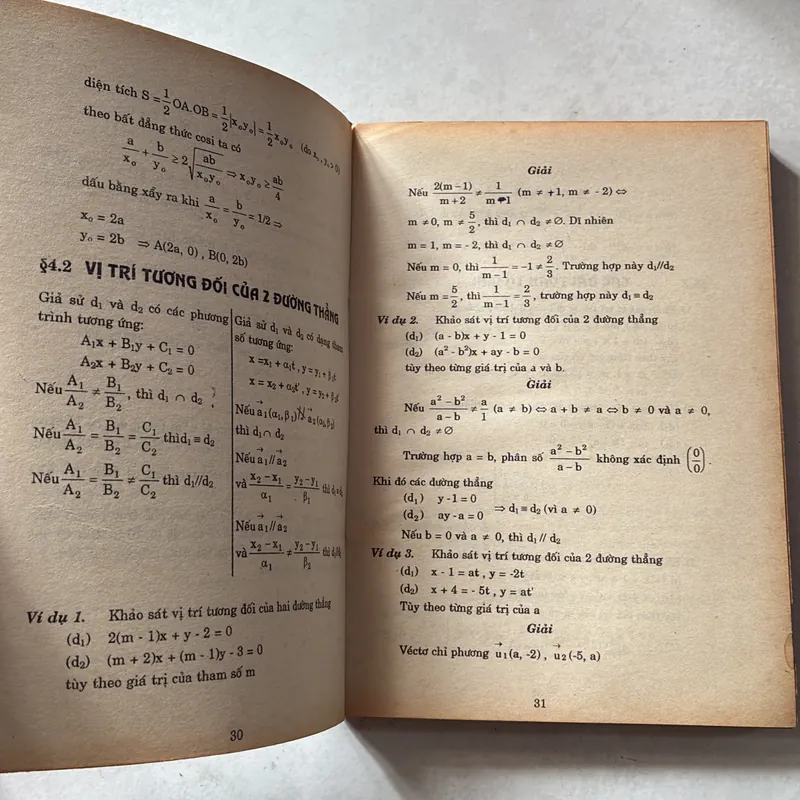 diện tích S = 1/2 OA.OB = 1/2 |x₀y₀| = 1/2 x₀y₀ (do x₀, y₀ > 0)
theo bất đẳng thức cosi ta có
a/x₀ + b/y₀ ≥ 2√(ab/x₀y₀) ⇒ x₀y₀ ≥ ab/4
dấu bằng xẩy ra khi a/x₀ = b/y₀ = 1/2 ⇒
x₀ = 2a
y₀ = 2b ⇒ A(2a, 0) , B(0, 2b)
§4.2 VỊ TRÍ TƯƠNG ĐỐI CỦA 2 ĐƯỜNG THẲNG
Giả sử d₁ và d₂ có các phương
trình tương ứng:
A₁x + B₁y + C₁ = 0
A₂x + B₂y + C₂ = 0
Nếu A₁/A₂ ≠ B₁/B₂ , thì d₁ ∩ d₂
Nếu A₁/A₂ = B₁/B₂ = C₁/C₂ thì d₁ ≡ d₂
Nếu A₁/A₂ = B₁/B₂ ≠ C₁/C₂ thì d₁//d₂
Giả sử d₁ và d₂ có dạng tham
số tương ứng:
x = x₁ + α₁t , y = y₁ + β₁t
x = x₂ + α₂t' , y = y₂ + β₂t'
Nếu a₁(α₁, β₁) a₂(α₂, β₂)
thì d₁∩ d₂
Nếu a₁// a₂
và (x₂ – x₁)/α₁ = (y₂ – y₁)/β₁ thì d₁≡d₂
Nếu a₁// a₂
và (x₂ – x₁)/α₁ ≠ (y₂ – y₁)/β₁ thì d₁//d₂
Ví dụ 1. Khảo sát vị trí tương đối của hai đường thẳng
(d₁) 2(m - 1)x + y - 2 = 0
(d₂) (m + 2)x + (m - 1)y - 3 = 0
tùy theo giá trị của tham số m
30
Giải
Nếu 2(m – 1)/(m + 2) ≠ 1/(m – 1) (m ≠ +1, m ≠ - 2) ⇔
m ≠ 0, m ≠ 5/2, thì d₁ ∩ d₂ ≠ ∅. Dĩ nhiên
m = 1, m = - 2, thì d₁ ∩ d₂ ≠ ∅
Nếu m = 0, thì 1/(m – 1) = –1 ≠ 2/3. Trường hợp này d₁//d₂
Nếu m = 5/2, thì 1/(m – 1) = 2/3, trường hợp này d₁ ≡ d₂
Ví dụ 2. Khảo sát vị trí tương đối của 2 đường thẳng
(d₁) (a - b)x + y - 1 = 0
(d₂) (a² - b²)x + ay - b = 0
tùy theo từng giá trị của a và b.
Giải
Nếu (a² – b²)/(a – b) ≠ a/1 (a ≠ b) ⇔ a + b ≠ a ⇔ b ≠ 0 và a ≠ 0,
thì d₁ ∩ d₂ ≠ ∅
Trường hợp a = b, phân số (a² – b²)/(a – b) không xác định (0/0).
Khi đó các đường thẳng
(d₁) y -1 = 0
(d₂) ay - a = 0 ⇒ d₁ ≡ d₂ (vì a ≠ 0)
Nếu b = 0 và a ≠ 0, thì d₁ // d₂
Ví dụ 3. Khảo sát vị trí tương đối của 2 đường thẳng
(d₁) x - 1 = at , y = -2t
(d₂) x + 4 = - 5t , y = at'
Tùy theo từng giá trị của a
Giải
Véctơ chỉ phương u₁(a, -2) , u₂(-5, a)
31